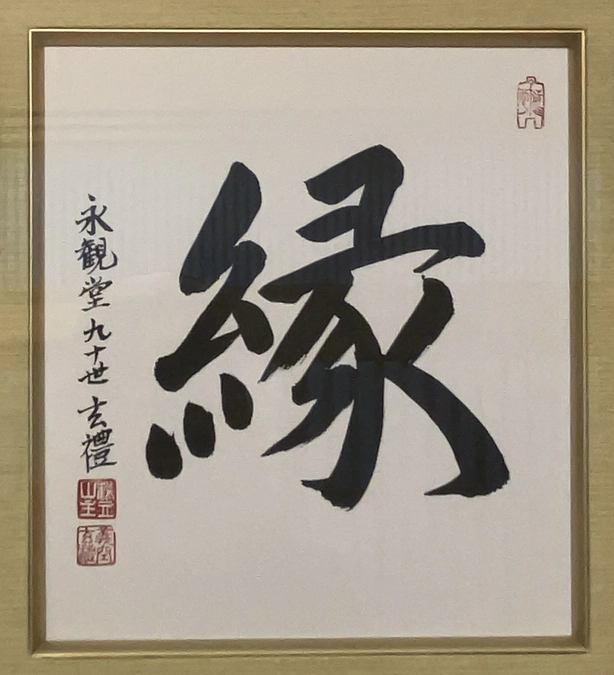 縁
永観堂九十世玄禮